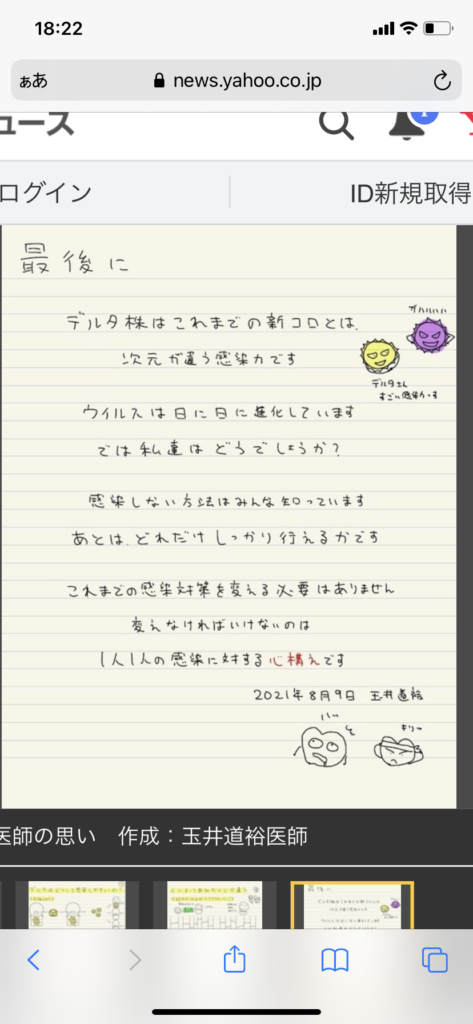 18:22
ぁあ
news.yahoo.co.jp
ュース
ログイン
ID新規取得
最後に
ガハハハ
デルタ株はこれまでの新コロとは、
次元が違う感染力です
デルタさん
すごい感染力っす
ウイルスは日に日に進化しています
では私達はどうでしょうか?
感染しない方法はみんな知っています
あとは、どれだけしっかり行えるかです
これまでの感染対策を変える必要はありません
変えなければいけないのは
1人1人の感染に対する心構えです
2021年8月9日 玉井道裕
キリー
医師の思い 作成:玉井道裕医師
最後に